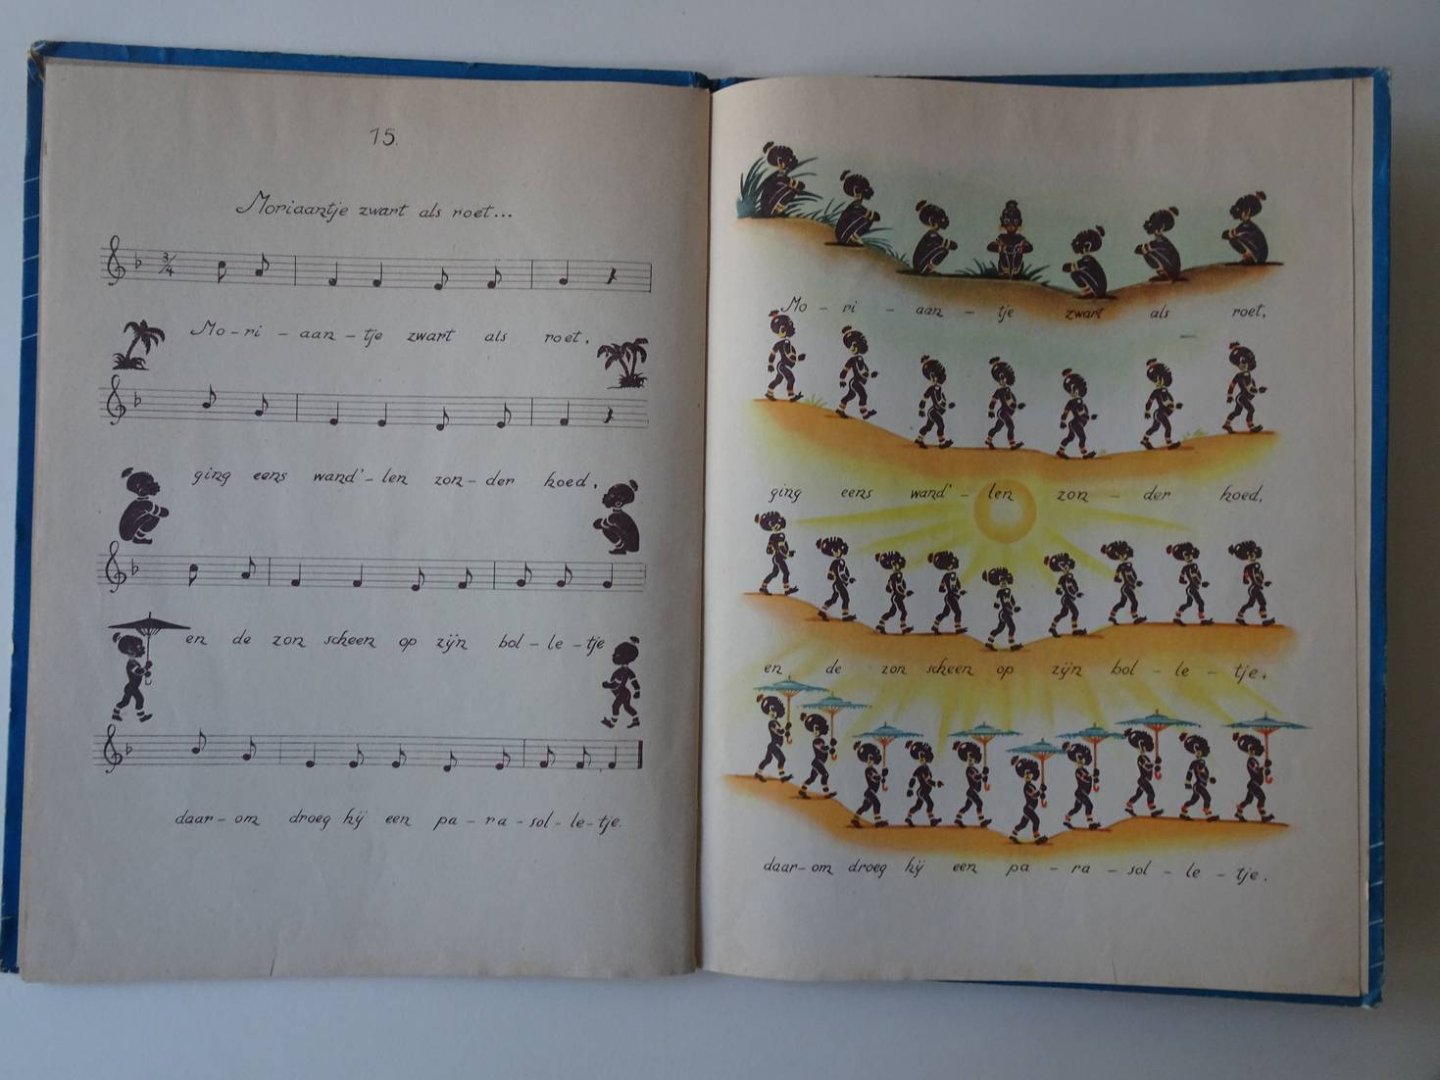 15.
Moriaantje zwart als roet...
3/4
Mo - ri - aan - tje zwart als roet,
ging eens wand' - len zon - der hoed,
en de zon scheen op zijn bol - le - tje
daar - om droeg hij een pa - ra - sol - le - tje.
Mo - ri - aan - tje zwart als roet,
ging eens wand' - len zon - der hoed,
en de zon scheen op zijn bol - le - tje,
daar - om droeg hij een pa - ra - sol - le - tje.